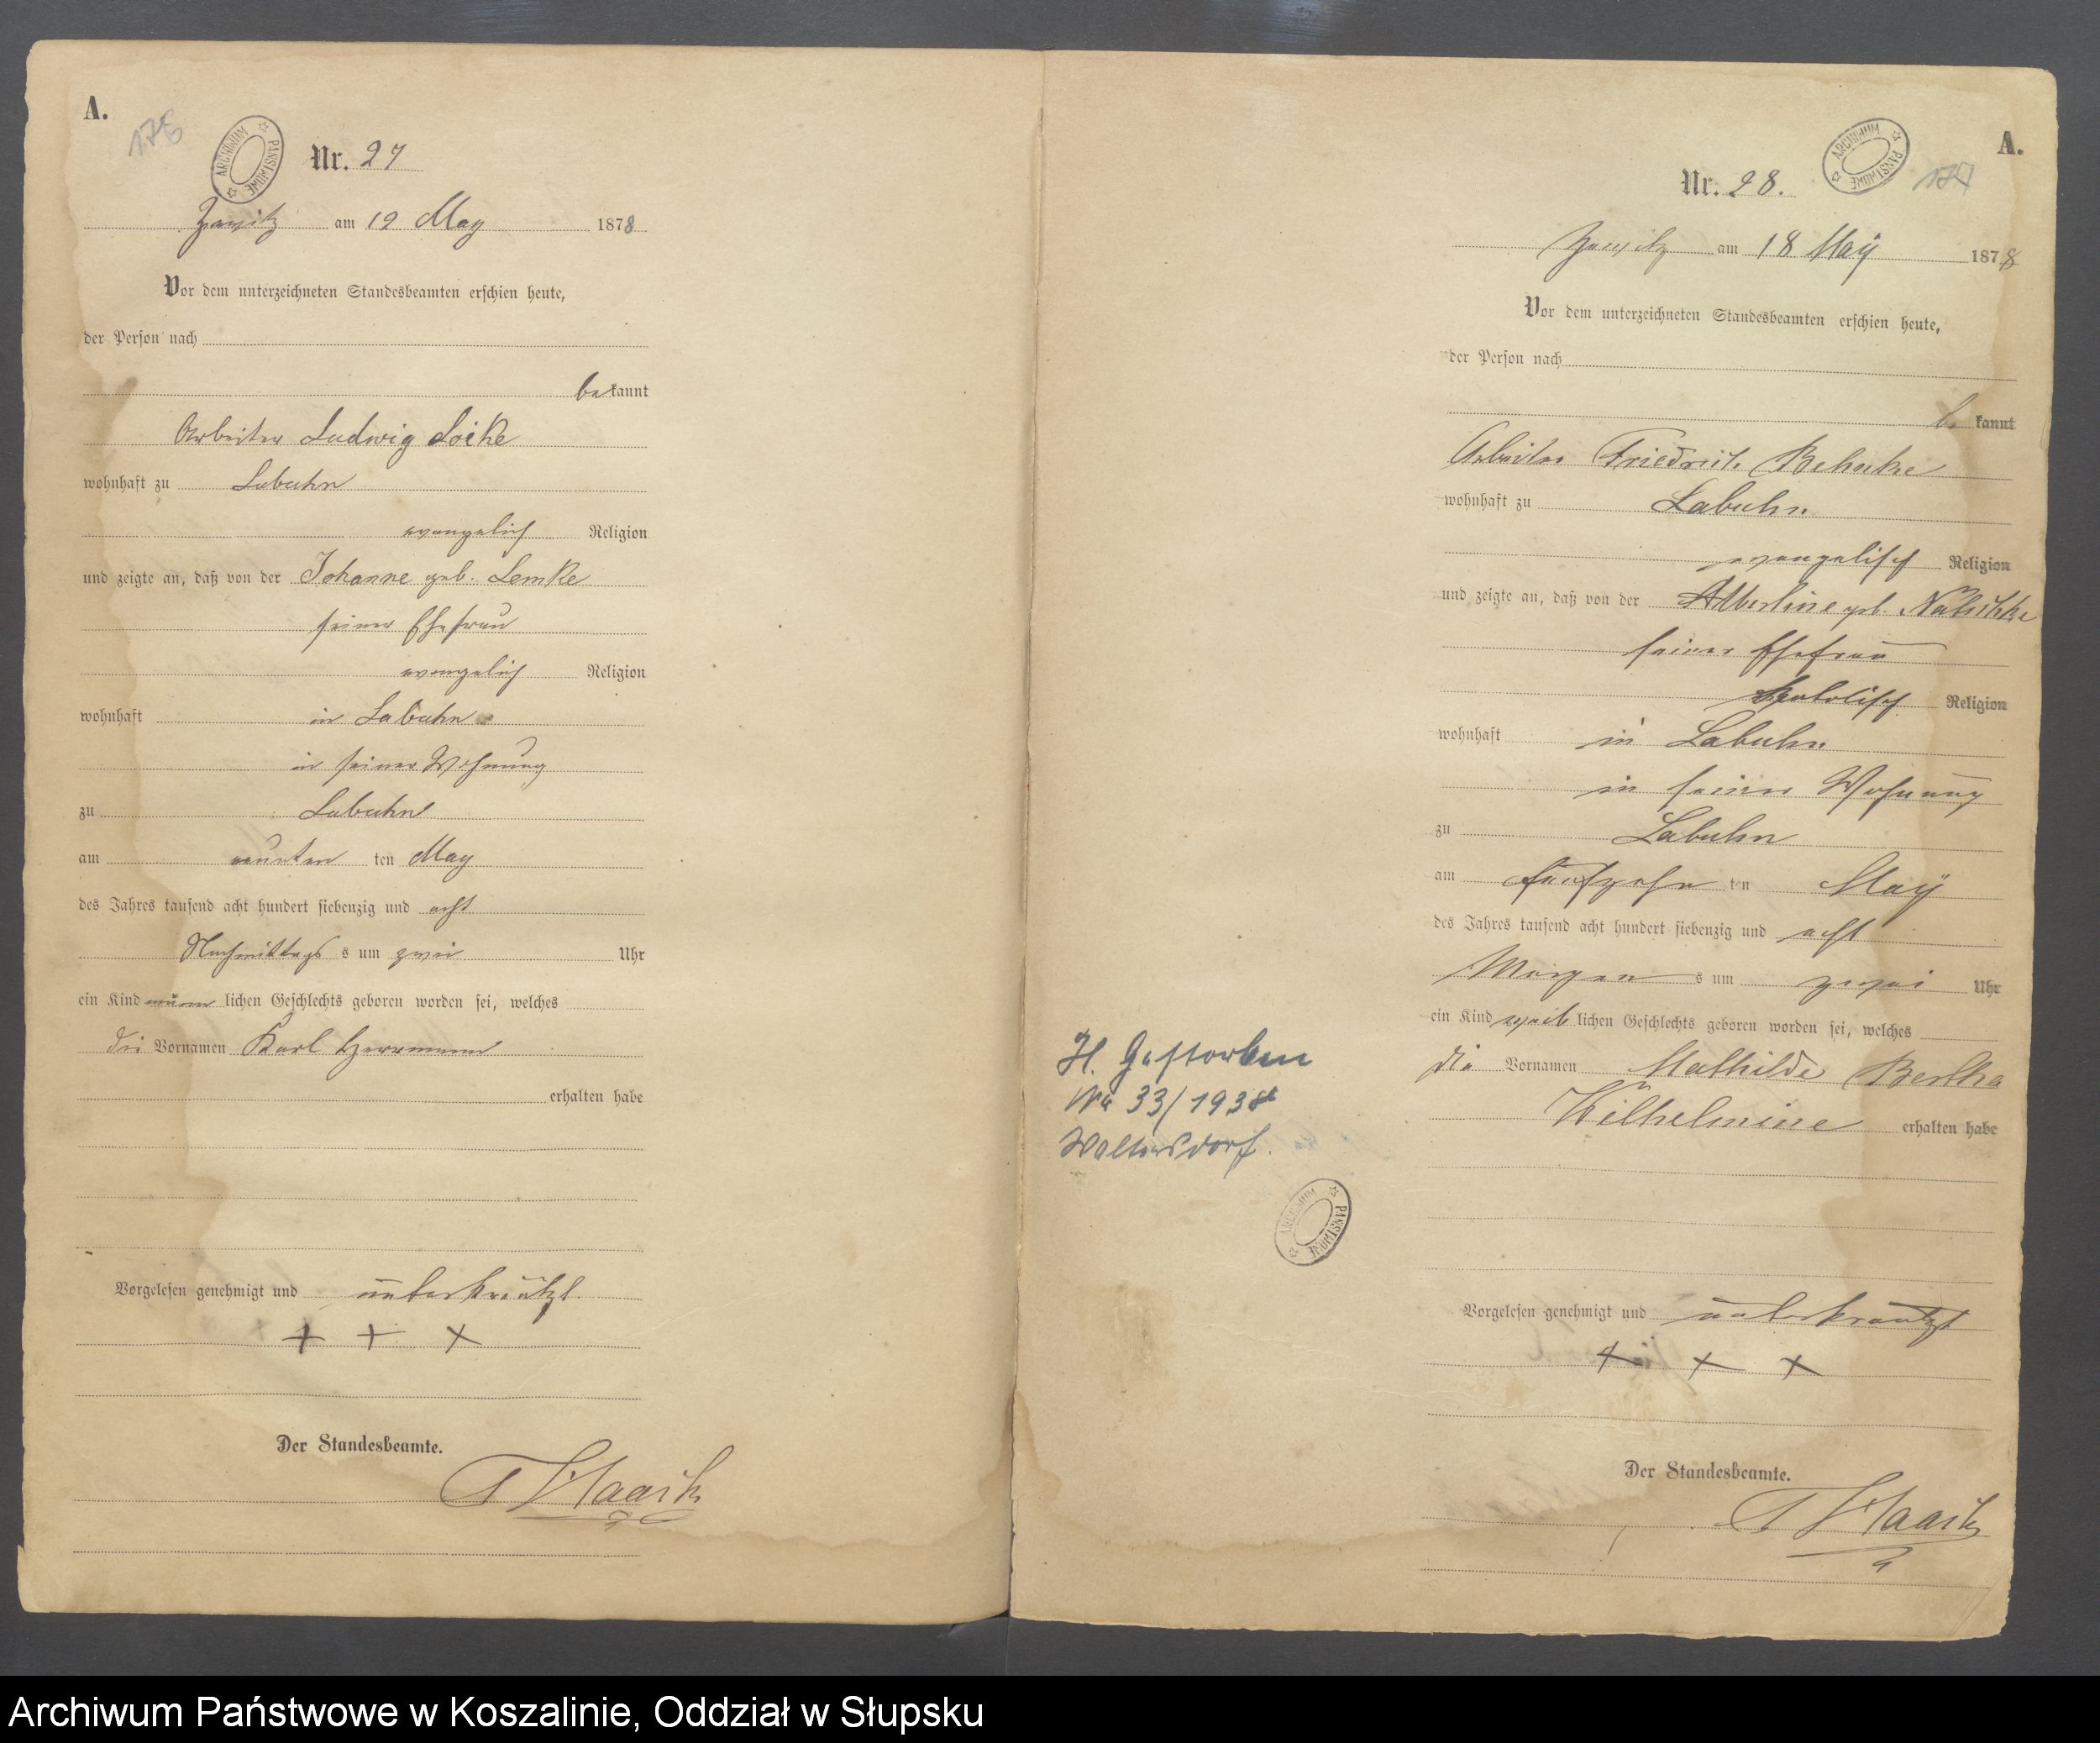 A.
176
ARCHIWUM PAŃSTWOWE
Nr. 27
Zewitz am 12 May 1878
Vor dem unterzeichneten Standesbeamten erschien heute,
der Person nach
bekannt
Arbeiter Ludwig Loike
wohnhaft zu Labuhn
evangelisch Religion
und zeigte an, daß von der Johanne geb. Lemke
seiner Ehefrau
evangelisch Religion
wohnhaft in Labuhn
in seiner Wohnung
zu Labuhn
am neunten ten May
des Jahres tausend acht hundert siebenzig und acht
Nachmittags s um zwei Uhr
ein Kind männ lichen Geschlechts geboren worden sei, welches
die Vornamen Karl Herrmann
erhalten habe
Vorgelesen genehmigt und unterkreutzt.
+ + +
Der Standesbeamte.
A.
177
ARCHIWUM PAŃSTWOWE
Nr. 28.
Zewitz am 18 May 1878
Vor dem unterzeichneten Standesbeamten erschien heute,
der Person nach
bekannt
Arbeiter Friedrich Behnke
wohnhaft zu Labuhn
evangelisch Religion
und zeigte an, daß von der Albertine geb.
seiner Ehefrau
katolisch Religion
wohnhaft in Labuhn
in seiner Wohnung
zu Labuhn
am fünfzehn ten May
des Jahres tausend acht hundert siebenzig und acht
Morgen s um zwei Uhr
ein Kind weib lichen Geschlechts geboren worden sei, welches
die Vornamen Mathilde Bertha
Wilhelmine erhalten habe
H. Gestorben
Nr 33/1938
Waltersdorf.
ARCHIWUM PAŃSTWOWE
Vorgelesen genehmigt und unterkreutzt
+ + +
Der Standesbeamte.
Archiwum Państwowe w Koszalinie, Oddział w Słupsku